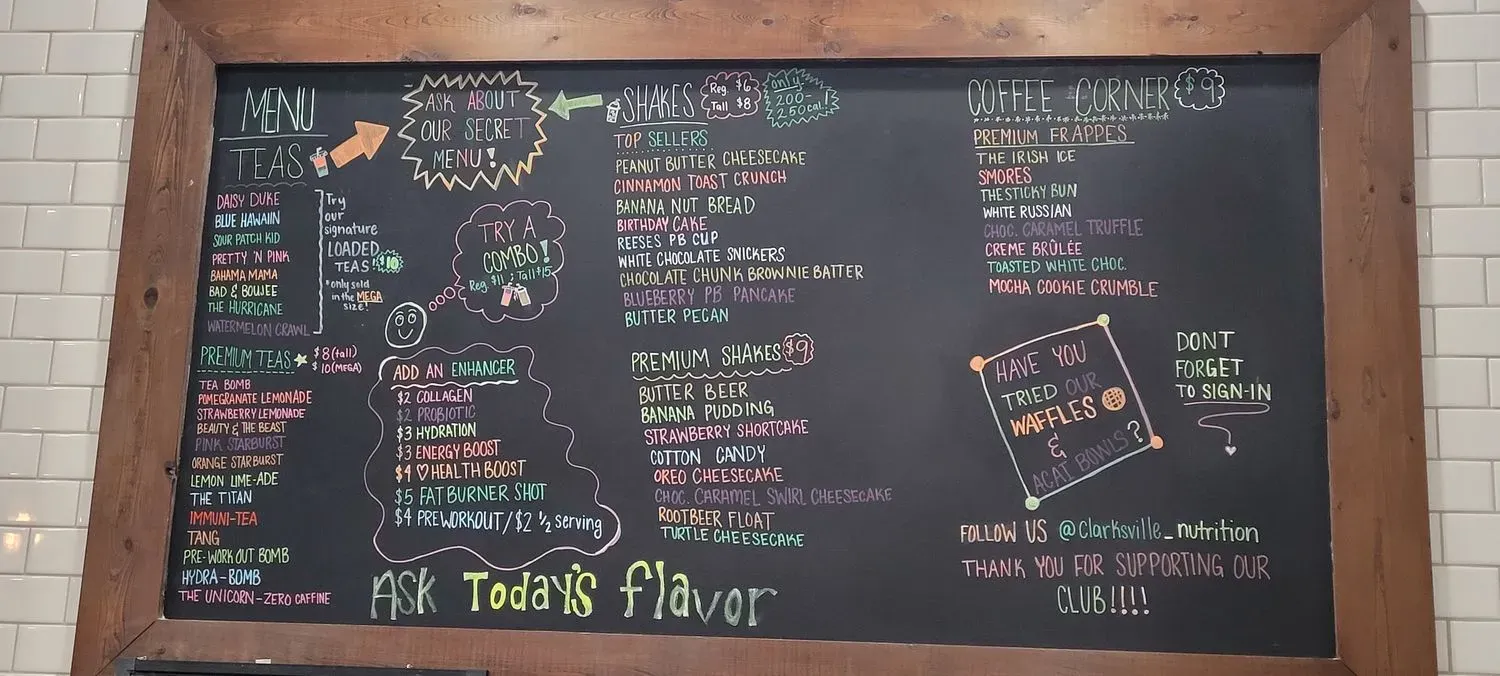 MENU
TEAS
DAISY DUKE
BLUE HAWAIIN
SOUR PATCH KID
PRETTY 'N PINK
BAHAMA MAMA
BAD & BOUJEE
THE HURRICANE
WATERMELON CRAWL
Try
our
signature
LOADED
TEAS! $10
*only sold
in the MEGA
size!
PREMIUM TEAS
$8 (tall)
$10 (MEGA)
TEA BOMB
POMEGRANATE LEMONADE
STRAWBERRY LEMONADE
BEAUTY & THE BEAST
PINK STARBURST
ORANGE STARBURST
LEMON LIME-ADE
THE TITAN
IMMUNI-TEA
TANG
PRE-WORK OUT BOMB
HYDRA-BOMB
THE UNICORN-ZERO CAFFINE
ASK ABOUT
OUR SECRET
MENU!
TRY A
COMBO!
Reg. $11 ; Tall $15
ADD AN ENHANCER
$2 COLLAGEN
$2 PROBIOTIC
$3 HYDRATION
$3 ENERGY BOOST
$4 ♡ HEALTH BOOST
$5 FAT BURNER SHOT
$4 PREWORKOUT/$2 ½ serving
ASK Today's flavor
SHAKES
Reg. $6
Tall $8
only
200-
250cal!
TOP SELLERS
PEANUT BUTTER CHEESECAKE
CINNAMON TOAST CRUNCH
BANANA NUT BREAD
BIRTHDAY CAKE
REESES PB CUP
WHITE CHOCOLATE SNICKERS
CHOCOLATE CHUNK BROWNIE BATTER
BLUEBERRY PB PANCAKE
BUTTER PECAN
PREMIUM SHAKES $9
BUTTER BEER
BANANA PUDDING
STRAWBERRY SHORTCAKE
COTTON CANDY
OREO CHEESECAKE
CHOC. CARAMEL SWIRL CHEESECAKE
ROOTBEER FLOAT
TURTLE CHEESECAKE
COFFEE CORNER $9
PREMIUM FRAPPES
THE IRISH ICE
SMORES
THE STICKY BUN
WHITE RUSSIAN
CHOC. CARAMEL TRUFFLE
CREME BRÛLÉE
TOASTED WHITE CHOC.
MOCHA COOKIE CRUMBLE
HAVE YOU
TRIED OUR
WAFFLES
&
ACAI BOWLS?
DONT
FORGET
TO SIGN-IN
FOLLOW US @Clarksville_nutrition
THANK YOU FOR SUPPORTING OUR
CLUB!!!!